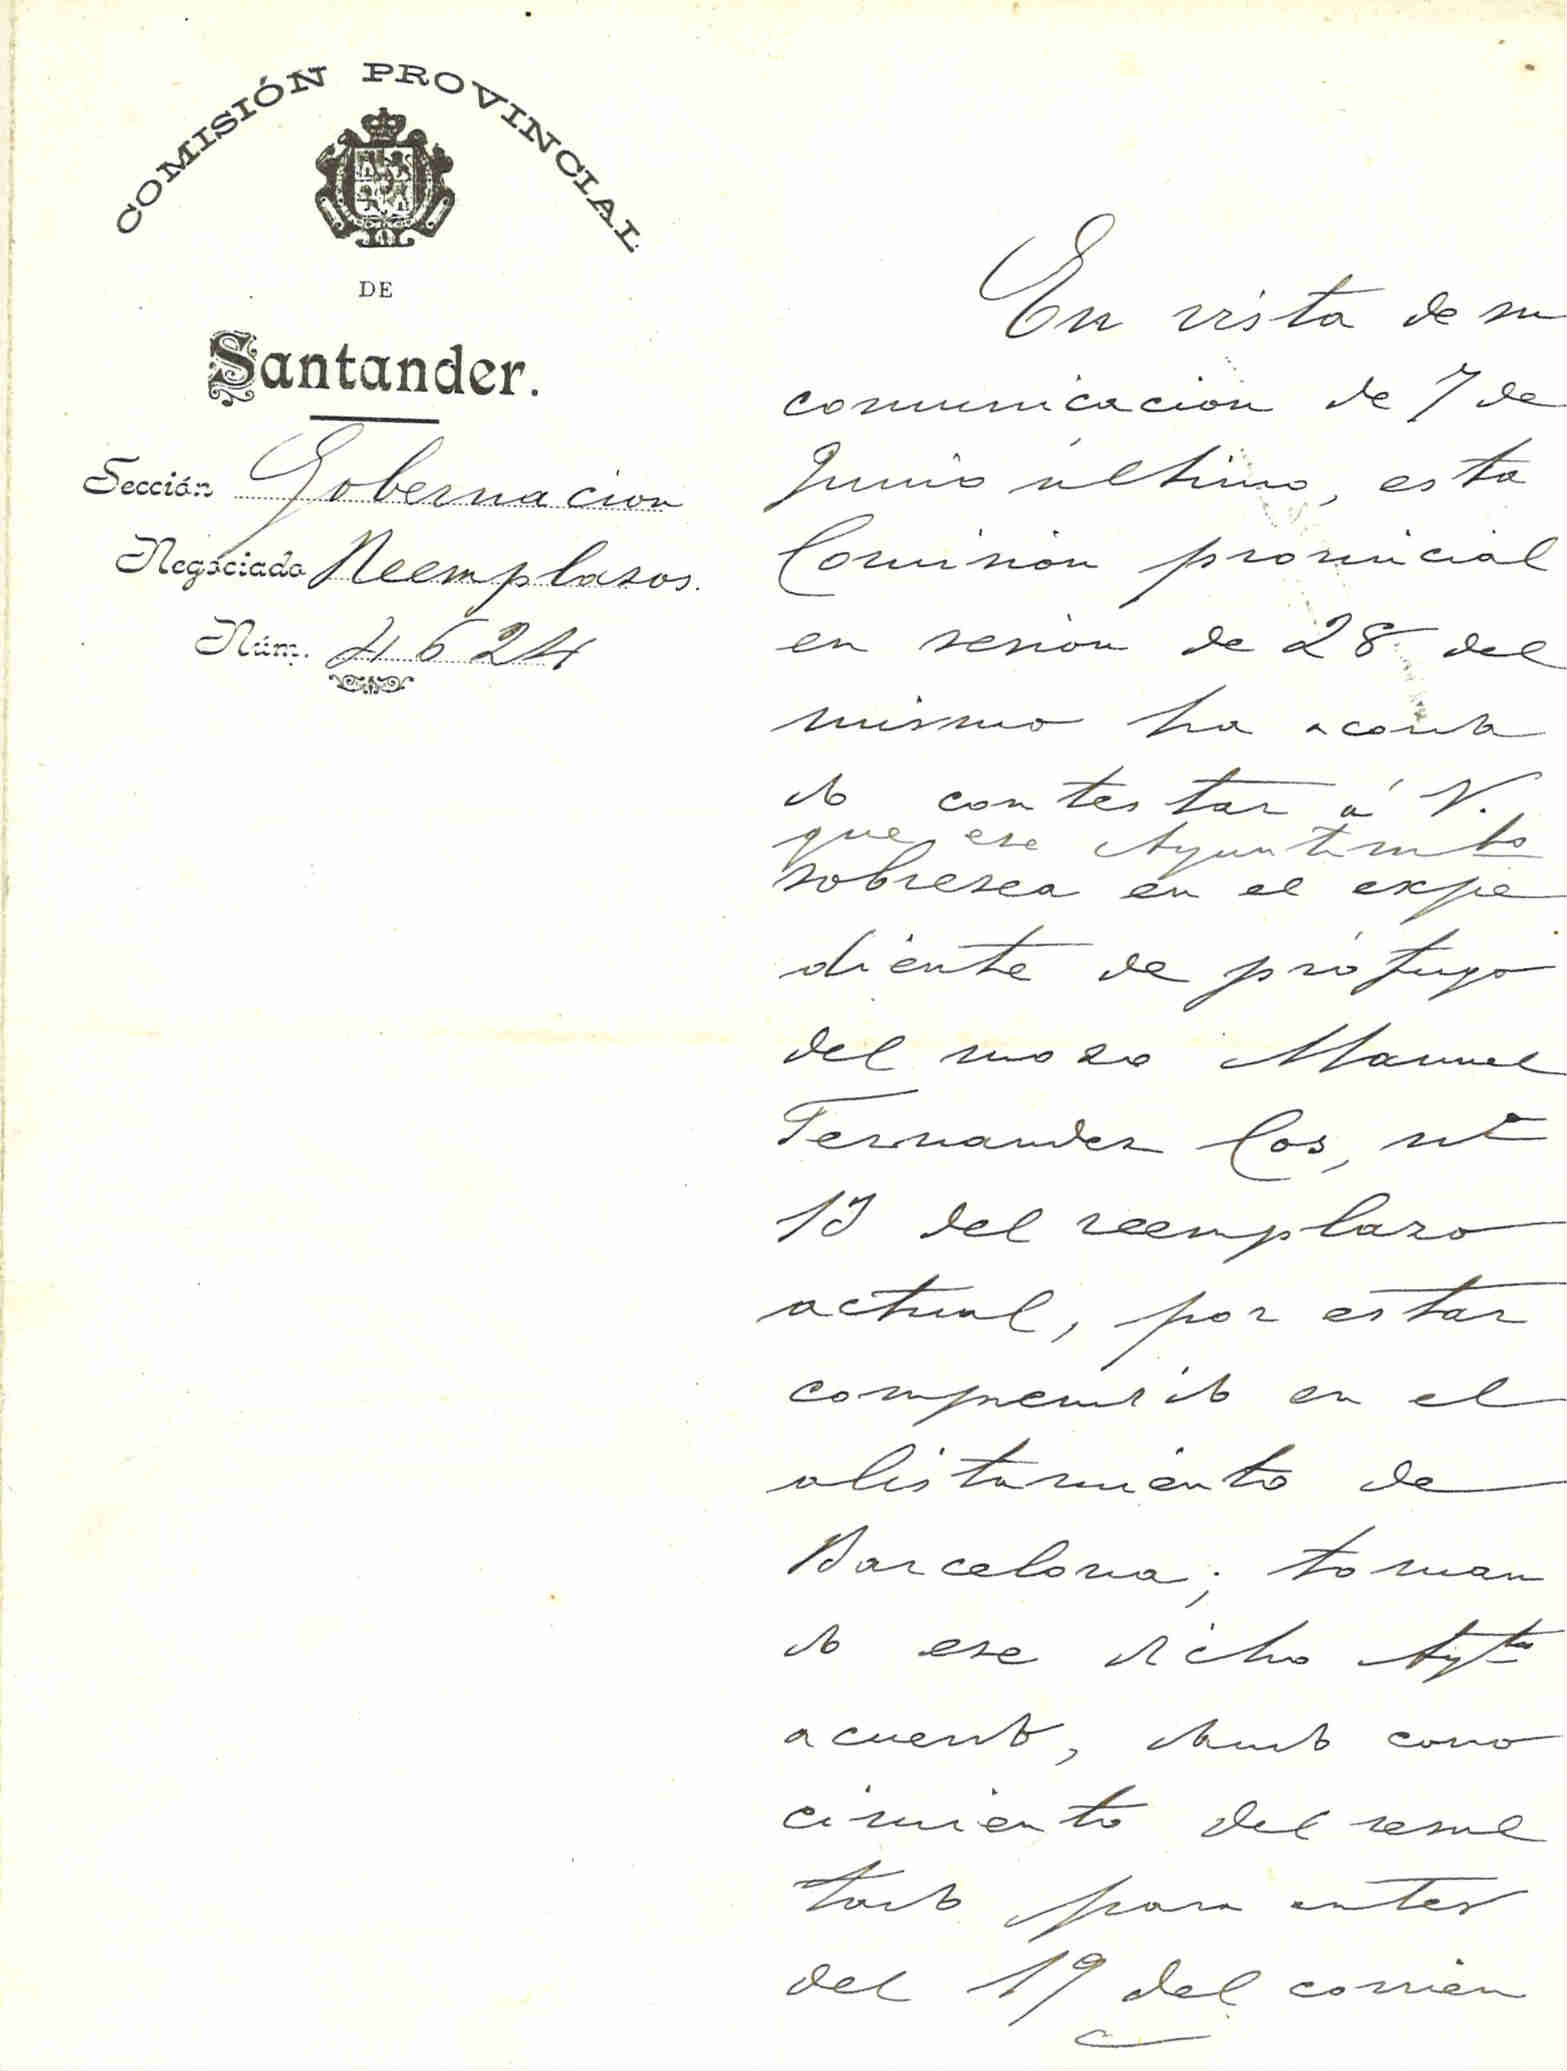 COMISIÓN PROVINCIAL
DE
Santander.
Sección Gobernacion
Negociado Reemplazos.
Núm. 4624
En vista de su
comunicacion de 7 de
Junio último, esta
Comision provincial
en sesion de 28 del
mismo ha acorda
do contestar á V.
que ese Ayuntmto
sobresea en el expe
diente de prófugo
del mozo Manuel
Fernandez Cos, no
13 del reemplazo
actual, por estar
comprendido en el
alistamiento de
Barcelona; toman
do ese dicho Ayto
acuerdo, dando cono
cimiento del resul
tado para antes
del 19 del corrien